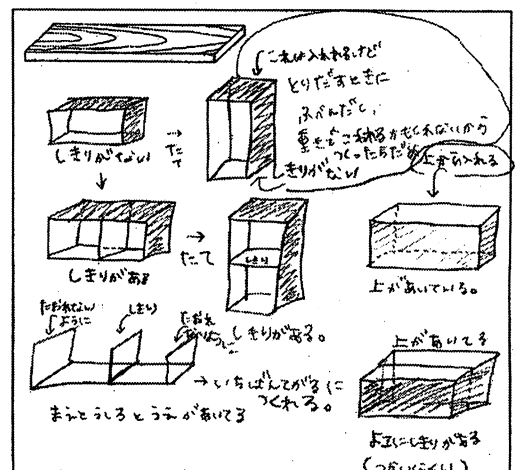 これは入れれるけど
とりだすときに
ふべんだし、
重さでこわれるかもしれないから
つくったらだめ
しきりがない
たて
しきりがない
上から入れる
しきりがある
たて
しきり
しきりがある。
上があいている。
たおれない
ように
しきり
たおれ
ないように
→いちばんてがるに
つくれる。
まえとうしろとうえがあいてる
上があいてる
よこにしきりがある
(つかいにくい)